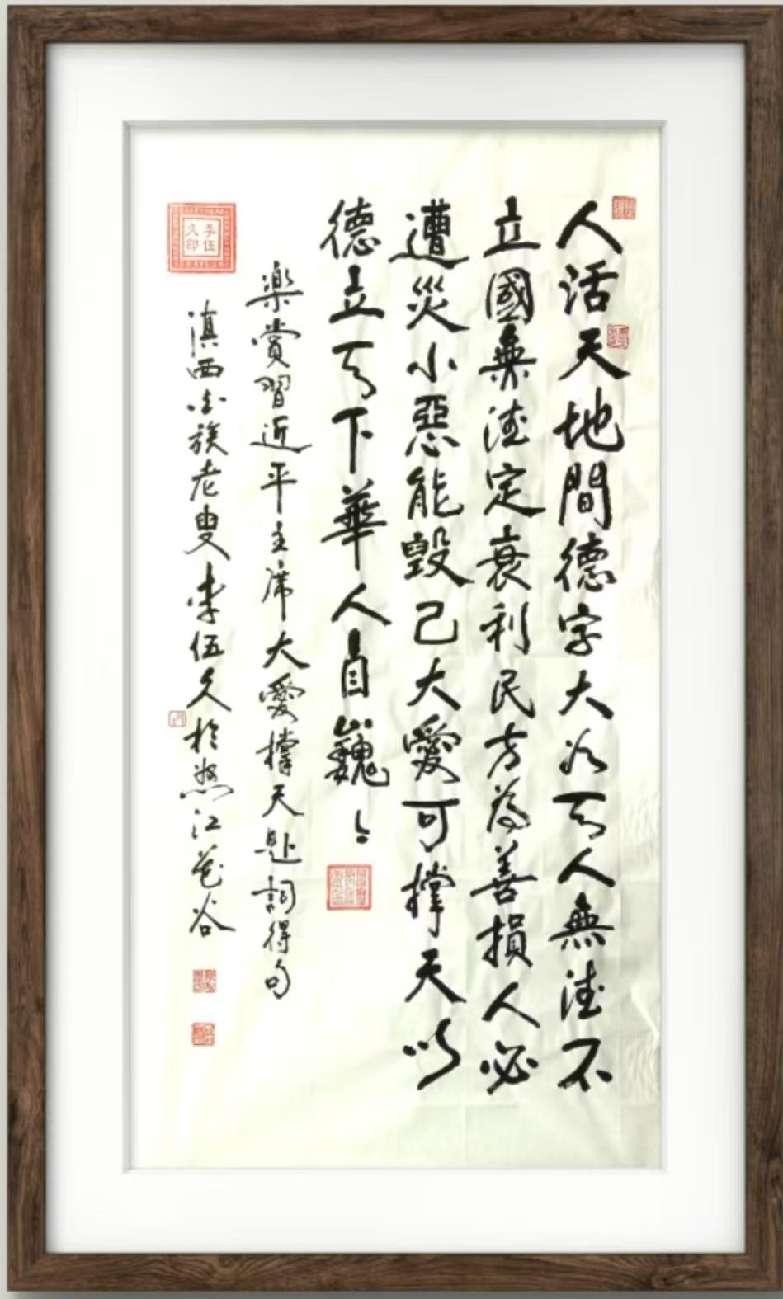 人活天地間德字大於天人無德不
立國無德定衰利民方為善損人必
遭災小惡能毀己大愛可撐天以
德立天下華人自巍々
樂賞習近平主席大愛撐天題詞得句
李伍久印
滇西白族老叟李伍久於怒江花谷